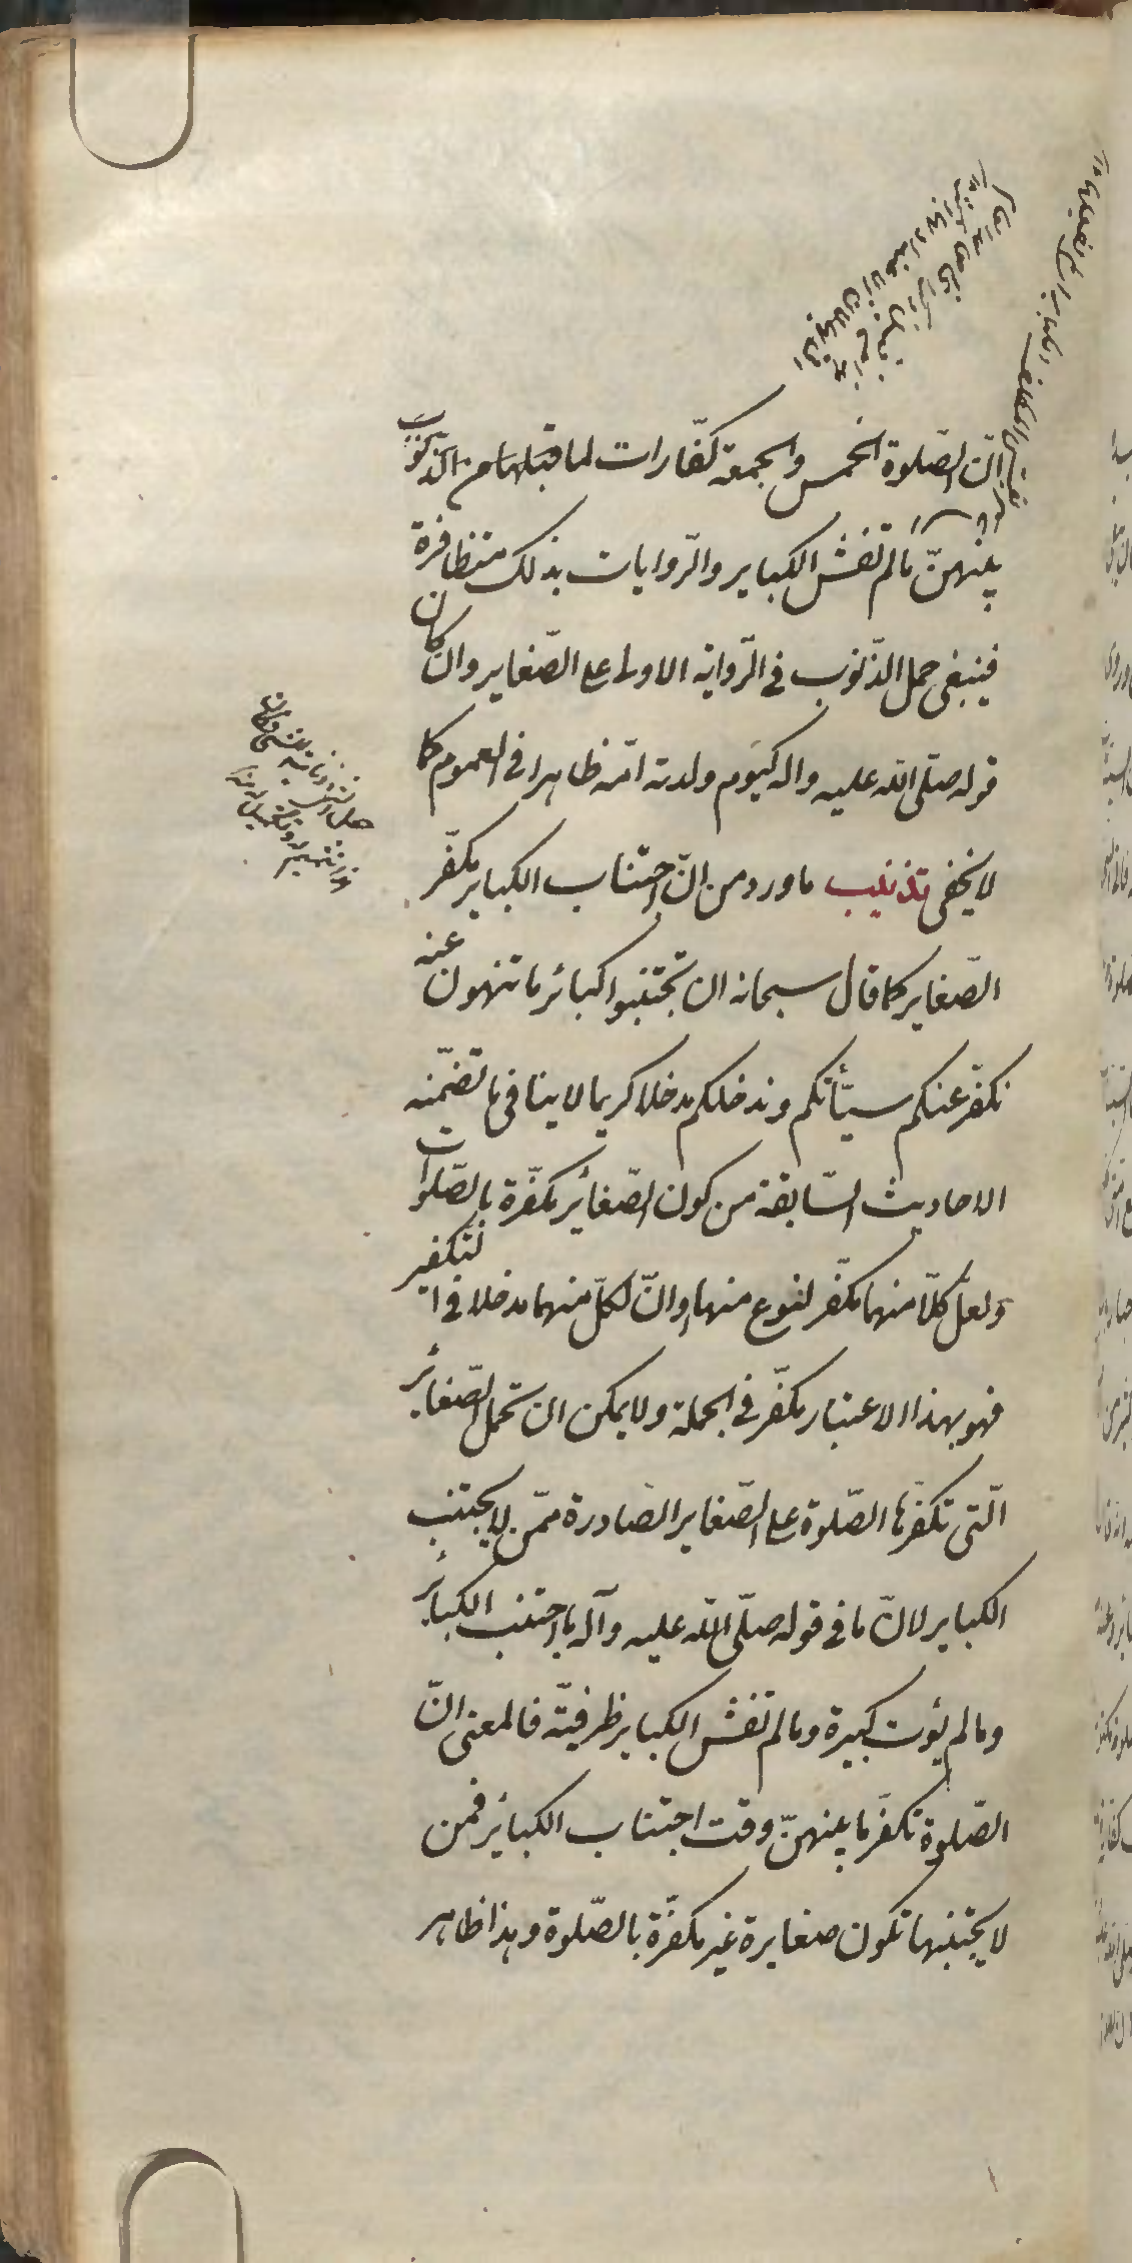 انّ الصّلوة الخمس والجمعة كفّارات لما قبلها من الذّنوب
بينهنّ ما لم تغش الكباير والرّوايات بذلك متظافرة
فينبغى حمل الذّنوب فى الرّواية الاولى على الصّغاير وان كان
قوله صلّى الله عليه واله كيَوم ولدته امّه ظاهرا فى العموم كما
لا يخفى تذنيب ما ورد من انّ اجتناب الكباير مكفّر
الصّغاير كما قال سبحانه ان تجتنبوا كبائر ما تنهون عنه
نكفّر عنكم سيّأتكم وندخلكم مدخلا كريما لا ينافى ما تضمّنه
الاحاديث السّابقة من كون الصّغائر مكفّرة بالصّلوات
ولعلّ كلّا منهما مكفّر لنوع منها وانّ لكلّ منهما مدخلا فى التكفير
فهو بهذا الاعتبار مكفّر فى الجملة ولا يمكن ان تحمل الصّغائر
الّتى تكفّرها الصّلوة على الصّغاير الصّادرة ممّن لا يجتنب
الكباير لانّ ما فى قوله صلّى الله عليه وآله ما اجتنب الكبائر
وما لم يؤت كبيرة وما لم تغش الكباير ظرفيّة فالمعنى انّ
الصّلوة تكفّر ما بينهنّ وقت اجتناب الكبائر فمن
لا يجتنبها تكون صغايره غير مكفّرة بالصّلوة وهذا ظاهر